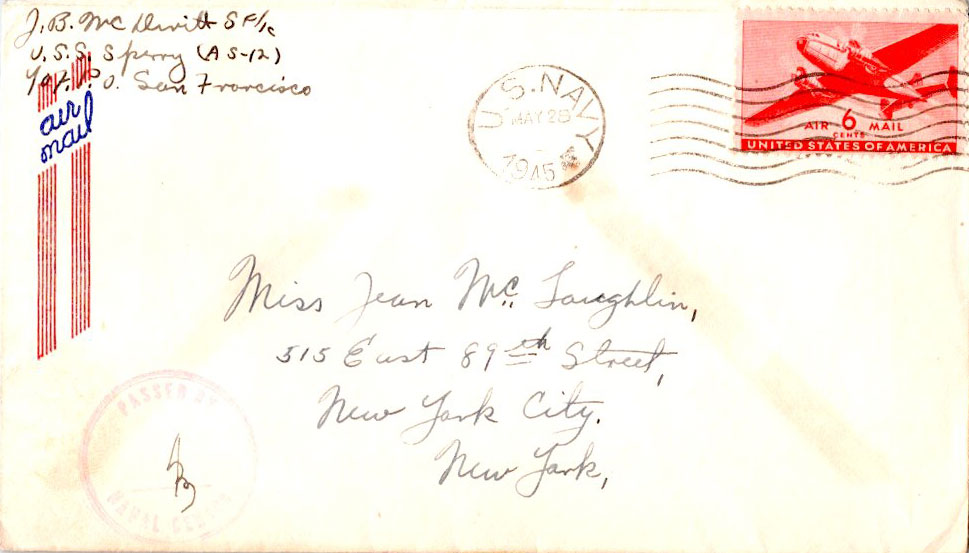 J. B. Mc Devitt SF/1c
U.S.S. Sperry (AS-12)
℅ F.P.O. San Francisco
air
mail
U.S. NAVY
MAY 28
1945
AIR 6 MAIL
CENTS
UNITED STATES OF AMERICA
Miss Jean Mc. Laughlin,
515 East 89th Street,
New York City.
New York,
PASSED BY
NAVAL CENSOR